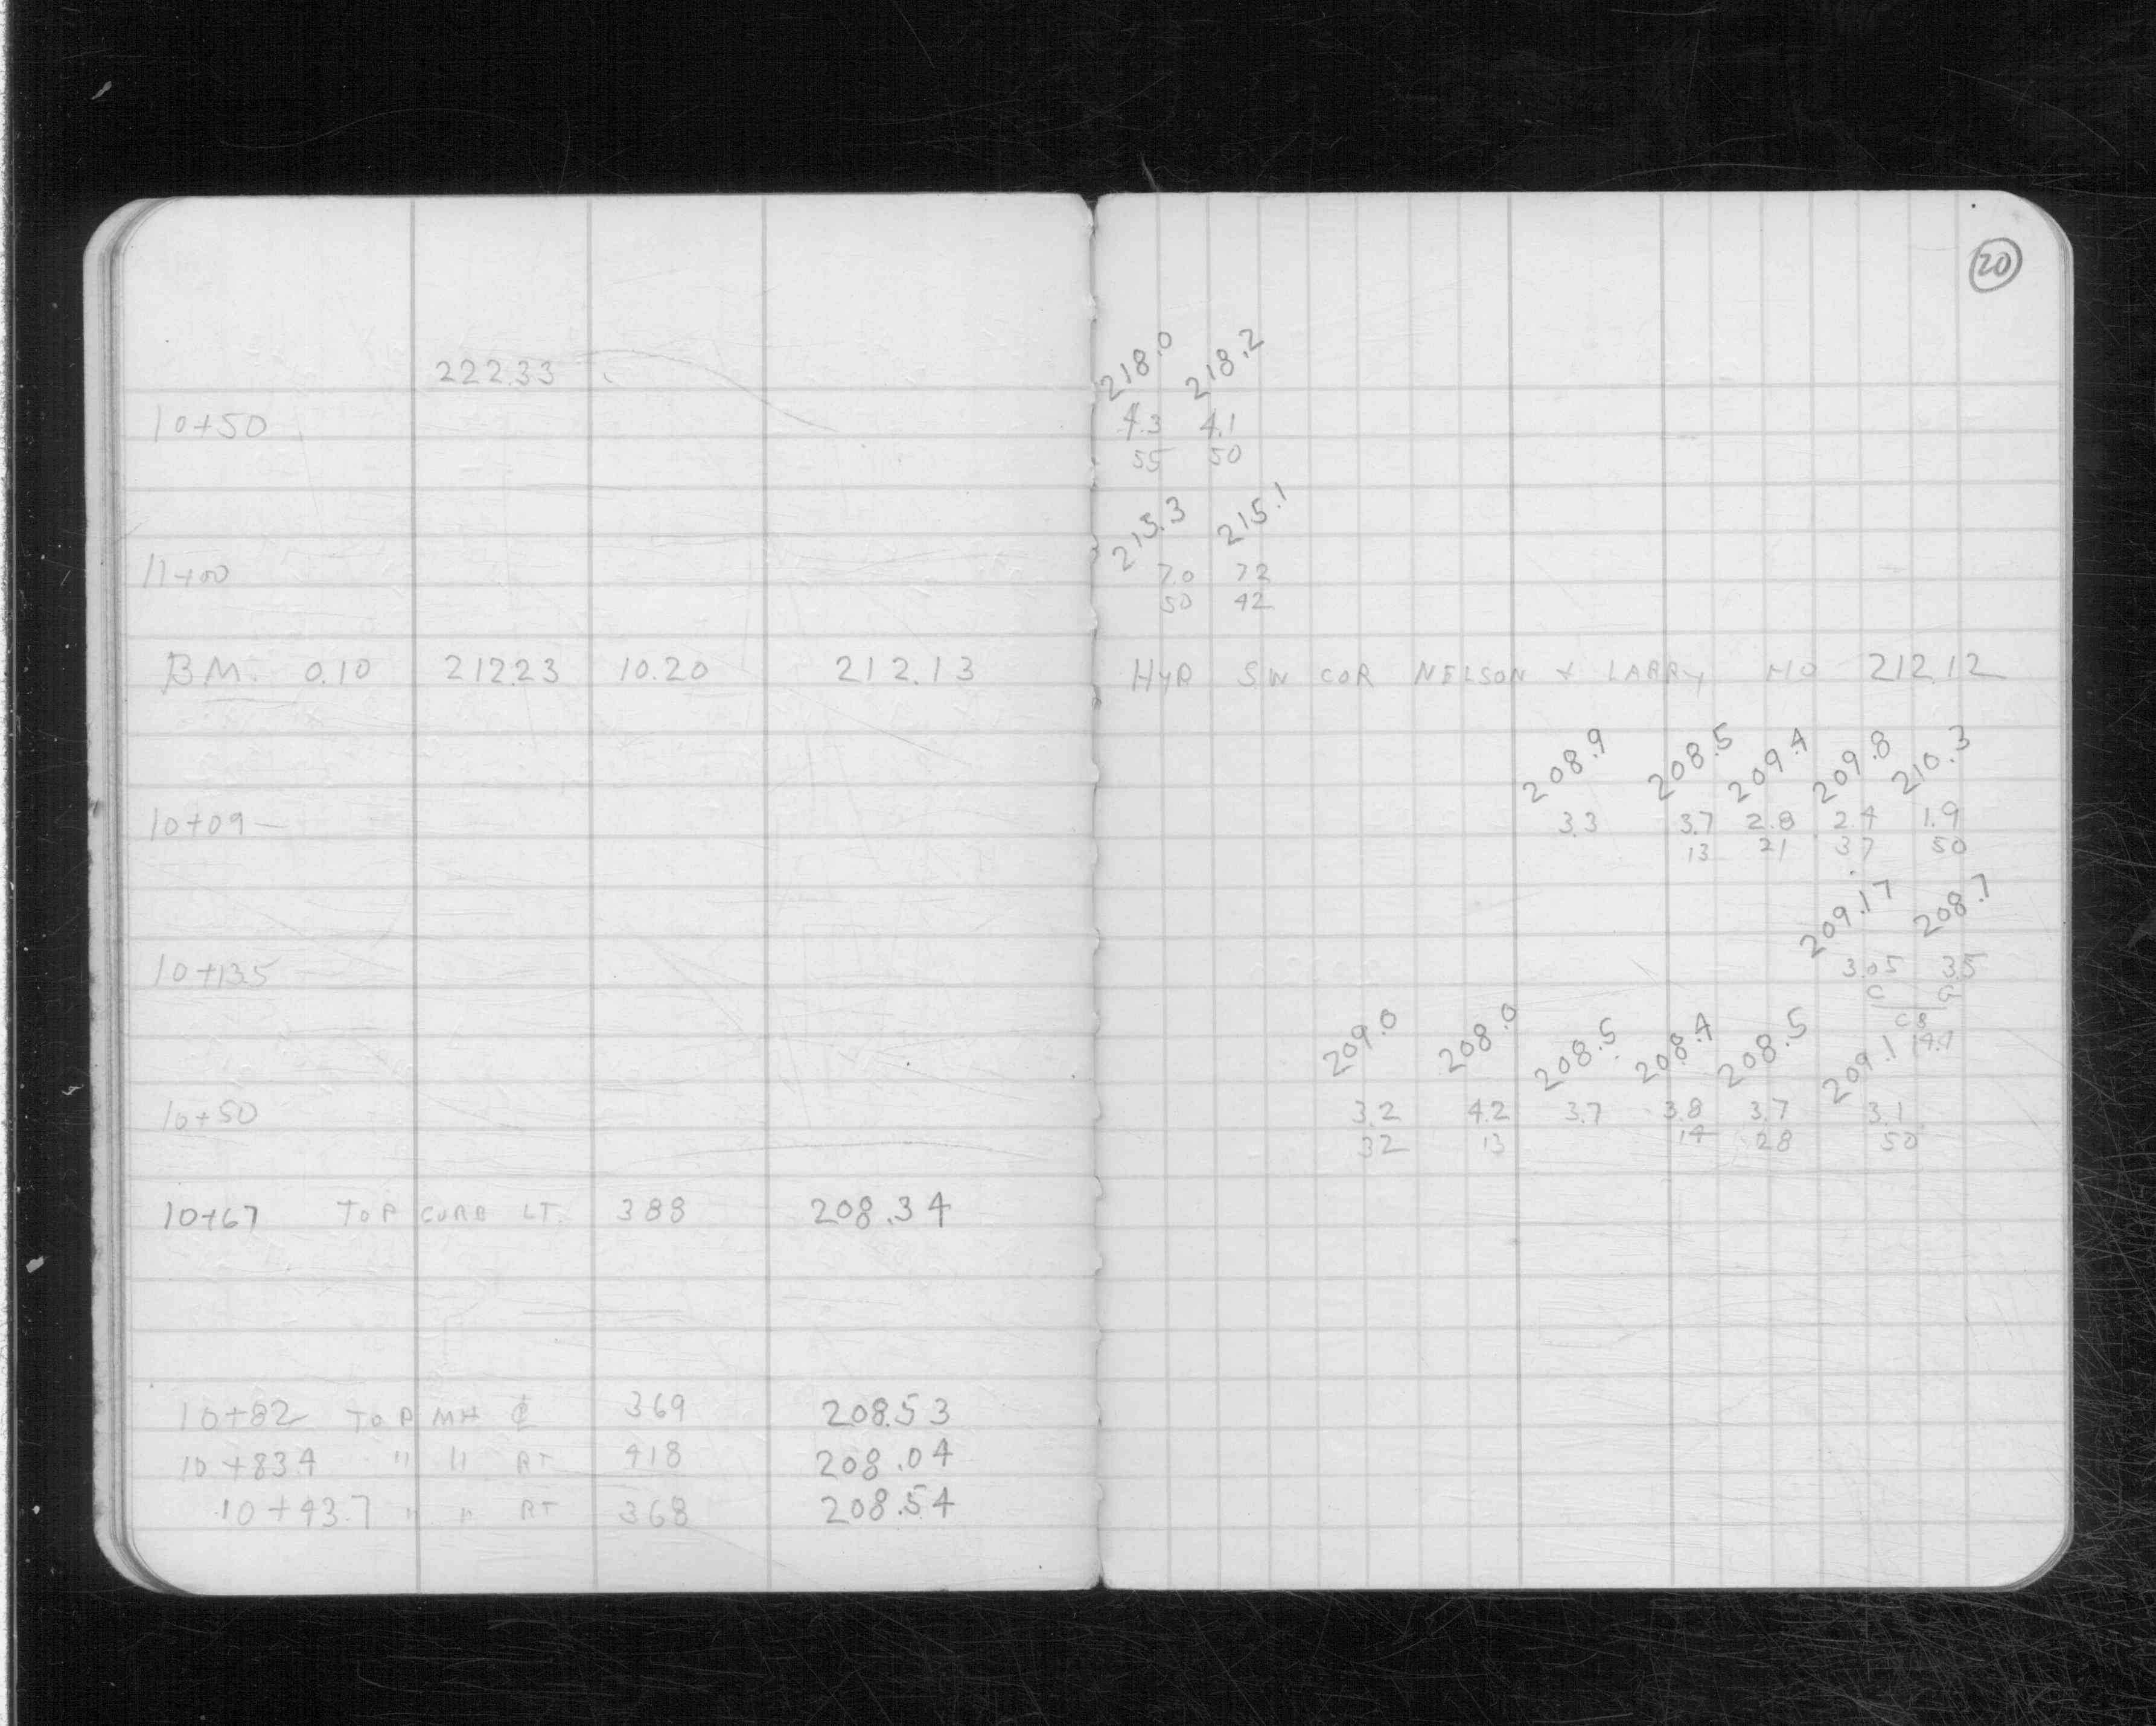 20
222.33
218.0 218.2
10+50 4.3 4.1
55 50
215.3 215.1
11+00 7.0 7.2
50 42
B.M. 0.10 212.23 10.20 212.13 HYD SW COR NELSON & LARRY 212.12
208.9 208.5 209.4 209.8 210.3
10+09 3.3 3.7 2.8 2.4 1.9
13 21 37 50
209.17 208.7
10+13.5 3.05 3.5
C G
CB
209.0 208.0 208.5 208.4 208.5 209.1
10+50 3.2 4.2 3.7 3.8 3.7 3.1
32 13 14 28 50
10+67 TOP CURB LT. 388 208.34
10+82 TOP MH ℄ 369 208.53
10+83.4 " " RT 418 208.04
10+43.7 " " RT 368 208.54